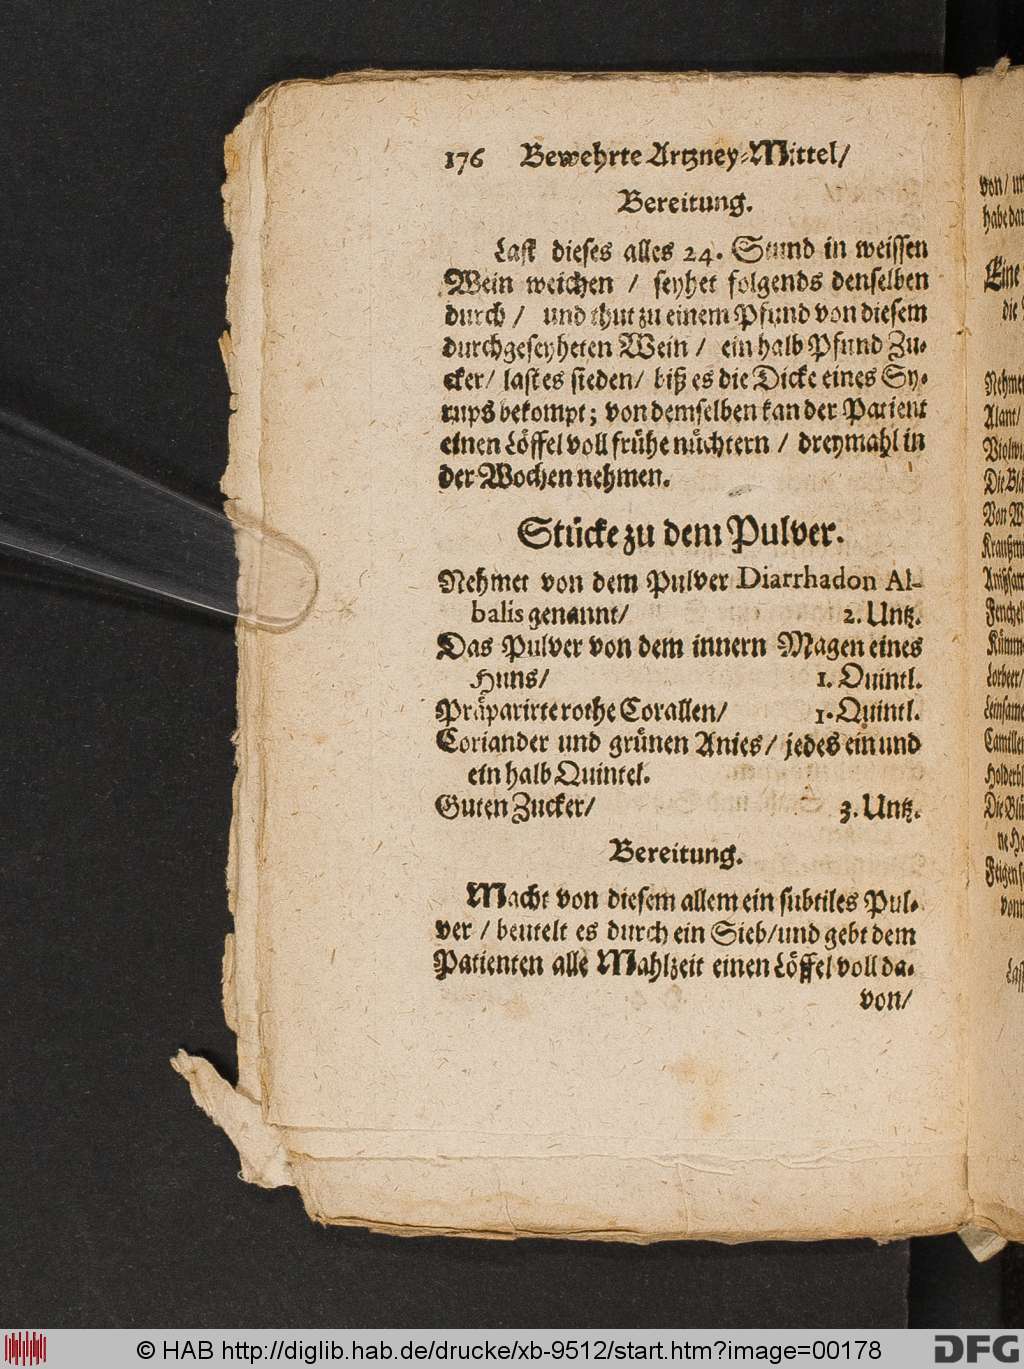 176 Bewehrte Artzney-Mittel/
Bereitung.
Last dieses alles 24. Stund in weissen
Wein weichen / seyhet folgends denselben
durch / und thut zu einem Pfund von diesem
durchgeseyheten Wein / ein halb Pfund Zu-
cker/ last es sieden/ biß es die Dicke eines Sy-
rups bekompt; von demselben kan der Patient
einen Löffel voll frühe nüchtern / dreymahl in
der Wochen nehmen.
Stücke zu dem Pulver.
Nehmet von dem Pulver Diarrhadon Al-
balis genannt/ 2. Untz.
Das Pulver von dem innern Magen eines
Huns/ 1. Quintl.
Präparirte rothe Corallen/ 1. Quintl.
Coriander und grünen Anies/ jedes ein und
ein halb Quintel.
Guten Zucker/ 3. Untz.
Bereitung.
Macht von diesem allem ein subtiles Pul-
ver / beutelt es durch ein Sieb/und gebt dem
Patienten alle Mahlzeit einen Löffel voll da-
von/
von/
habe
Eine
die
Nehmet
Alant/
Die
Von
Fenchel
Lorbeer/
Camillen
Die
© HAB http://diglib.hab.de/drucke/xb-9512/start.htm?image=00178
DFG